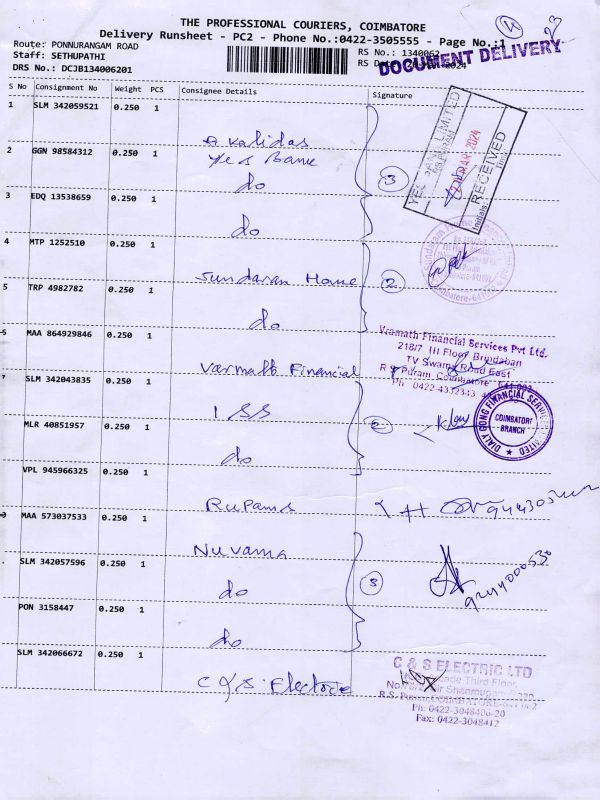 THE PROFESSIONAL COURIERS, COIMBATORE
Delivery Runsheet - PC2 - Phone No.:0422-3505555 - Page No.:1
Route: PONNURANGAM ROAD
RS No.: 1340062
Staff: SETHUPATHI
DOCUMENT DELIVERY
DRS No.: DCJB134006201
S No Consignment No Weight PCS Consignee Details Signature
1 SLM 342059521 0.250 1
Yes Bank
2 GGN 98584312 0.250 1
do
3 EDQ 13538659 0.250 1
do
3
LIMITED
MAR 2024
RECEIVED
Initials
4 MTP 1252510 0.250 1
Sundaram Home
5 TRP 4982782 0.250 1
do
2
MAA 864929846 0.250 1
Varmath Financial
Vramath Financial Services Pvt Ltd.
218/7 III Floor, Brindaban
TV Swamy Road East
R S Puram, Coimbatore
Ph 0422-4332343
SLM 342043835 0.250 1
ISS
MLR 40851957 0.250 1
do
COIMBATORE
BRANCH
VPL 945966325 0.250 1
Rupams
MAA 573037533 0.250 1
Nuvama
SLM 342057596 0.250 1
do
PON 3158447 0.250 1
do
3
SLM 342066672 0.250 1
C & S Electric
C & S ELECTRIC LTD
Third Floor
R.S. Puram, COIMBATORE-641 002
Ph: 0422-3048406-20
Fax: 0422-3048412